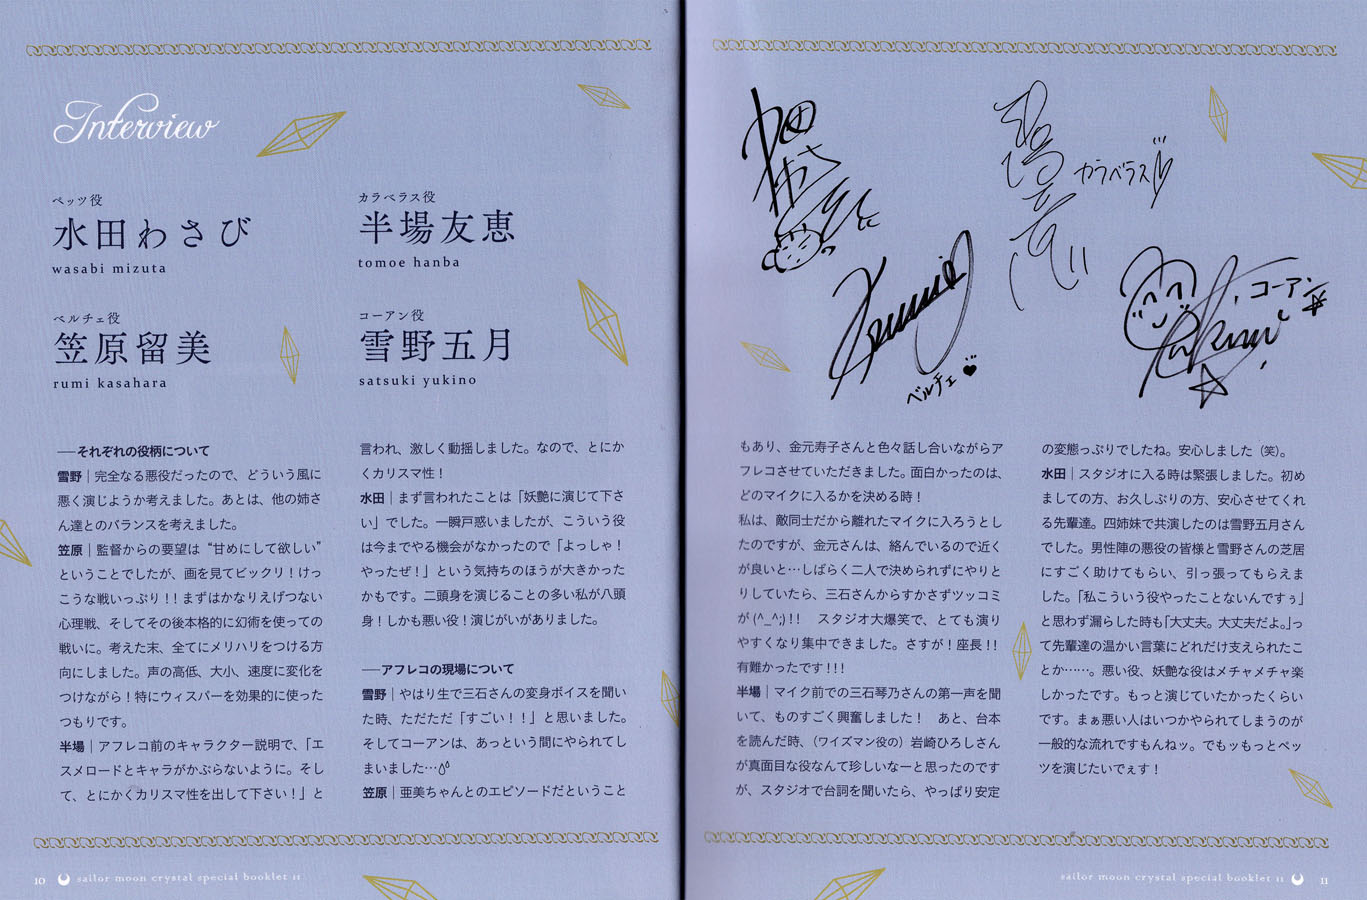 Interview
ペッツ役
水田わさび
wasabi mizuta
カラベラス役
半場友恵
tomoe hanba
ベルチェ役
笠原留美
rumi kasahara
コーアン役
雪野五月
satsuki yukino
──それぞれの役柄について
雪野｜完全なる悪役だったので、どういう風に
悪く演じようか考えました。あとは、他の姉さ
ん達とのバランスを考えました。
笠原｜監督からの要望は“甘めにして欲しい”
ということでしたが、画を見てビックリ！けっ
こうな戦いっぷり！！まずはかなりえげつない
心理戦、そしてその後本格的に幻術を使っての
戦いに。考えた末、全てにメリハリをつける方
向にしました。声の高低、大小、速度に変化を
つけながら！特にウィスパーを効果的に使った
つもりです。
半場｜アフレコ前のキャラクター説明で、「エ
スメロードとキャラがかぶらないように。そし
て、とにかくカリスマ性を出して下さい！」と
言われ、激しく動揺しました。なので、とにか
くカリスマ性！
水田｜まず言われたことは「妖艶に演じて下さ
い」でした。一瞬戸惑いましたが、こういう役
は今までやる機会がなかったので「よっしゃ！
やったぜ！」という気持ちのほうが大きかった
かもです。二頭身を演じることの多い私が八頭
身！しかも悪い役！演じがいがありました。
──アフレコの現場について
雪野｜やはり生で三石さんの変身ボイスを聞い
た時、ただただ「すごい！！」と思いました。
そしてコーアンは、あっという間にやられてし
まいました…
笠原｜亜美ちゃんとのエピソードだということ
10 sailor moon crystal special booklet 11
カラベラス
コーアン
ベルチェ
もあり、金元寿子さんと色々話し合いながらア
フレコさせていただきました。面白かったのは、
どのマイクに入るかを決める時！
私は、敵同士だから離れたマイクに入ろうとし
たのですが、金元さんは、絡んでいるので近く
が良いと…しばらく二人で決められずにやりと
りしていたら、三石さんからすかさずツッコミ
が(^_^;)！！　スタジオ大爆笑で、とても演り
やすくなり集中できました。さすが！座長！！
有難かったです！！！
半場｜マイク前での三石琴乃さんの第一声を聞
いて、ものすごく興奮しました！　あと、台本
を読んだ時、（ワイズマン役の）岩崎ひろしさん
が真面目な役なんて珍しいなーと思ったのです
が、スタジオで台詞を聞いたら、やっぱり安定
の変態っぷりでしたね。安心しました（笑）。
水田｜スタジオに入る時は緊張しました。初め
ましての方、お久しぶりの方、安心させてくれ
る先輩達。四姉妹で共演したのは雪野五月さん
でした。男性陣の悪役の皆様と雪野さんの芝居
にすごく助けてもらい、引っ張ってもらえま
した。「私こういう役やったことないんですぅ」
と思わず漏らした時も「大丈夫。大丈夫だよ。」っ
て先輩達の温かい言葉にどれだけ支えられたこ
とか……。悪い役、妖艶な役はメチャメチャ楽
しかったです。もっと演じていたかったくらい
です。まぁ悪い人はいつかやられてしまうのが
一般的な流れですもんねッ。でもッもっとペッ
ツを演じたいでぇす！
sailor moon crystal special booklet 11 11